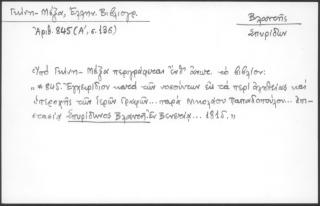 Γκίνη - Μέξα, Ἑλλην. Βιβλιογρ.
Ἀριθ. 845 (Α', σ. 136)
Βλαντῆς
Σπυρίδων
Ὑπὸ Γκίνη - Μέξα περιγράφεται τὸ βιβλίον:
"*845. Ἐγχειρίδιον κατὰ τῶν νοσούντων εἰς τὰ περὶ ἀληθείας καὶ
ὑπεροχῆς τῶν ἱερῶν Γραφῶν... παρὰ Νικολάου Παπαδοπούλου... ἐπι-
στασίᾳ Σπυρίδωνος Βλαντῆ. Ἐν Βενετίᾳ... 1815."